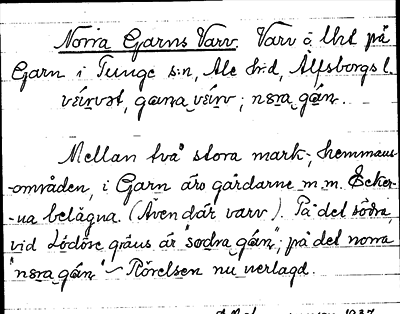 Norra Garns Varv. Varv å Uhl på
Garn i Tunge s:n, Ale h:d, Älfsborgs l.
veírvət, gaɯna veírv; nɐra gán.
Mellan två stora mark-, hemmans-
-områden, i Garn äro gårdarne m.m. Ecker-
-na belägna. (Även där varv). På det södra,
vid Lödöse gräns är "sødra gán"; på det norra
"nɐra gán" – Rörelsen nu nerlagd.
1937